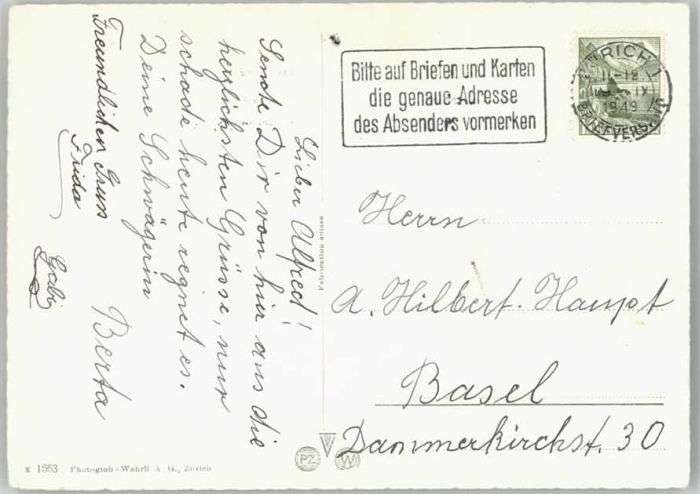 Lieber Alfred!
Sende Dir von hier aus die
herzlichsten Grüsse, nur
schade heute regnet es.
Deine Schwägerin
Berta
Freundlichen Gruss
Frida
Gabi
Bitte auf Briefen und Karten
die genaue Adresse
des Absenders vormerken
ZÜRICH 1
11-12
IX
1949
BRIEFVERSAND
Herrn
A. Hilbert-Haupt
Basel
Dammerkirchst. 30
K 1553 Photoglob-Wehrli A. G., Zürich
PZ
W